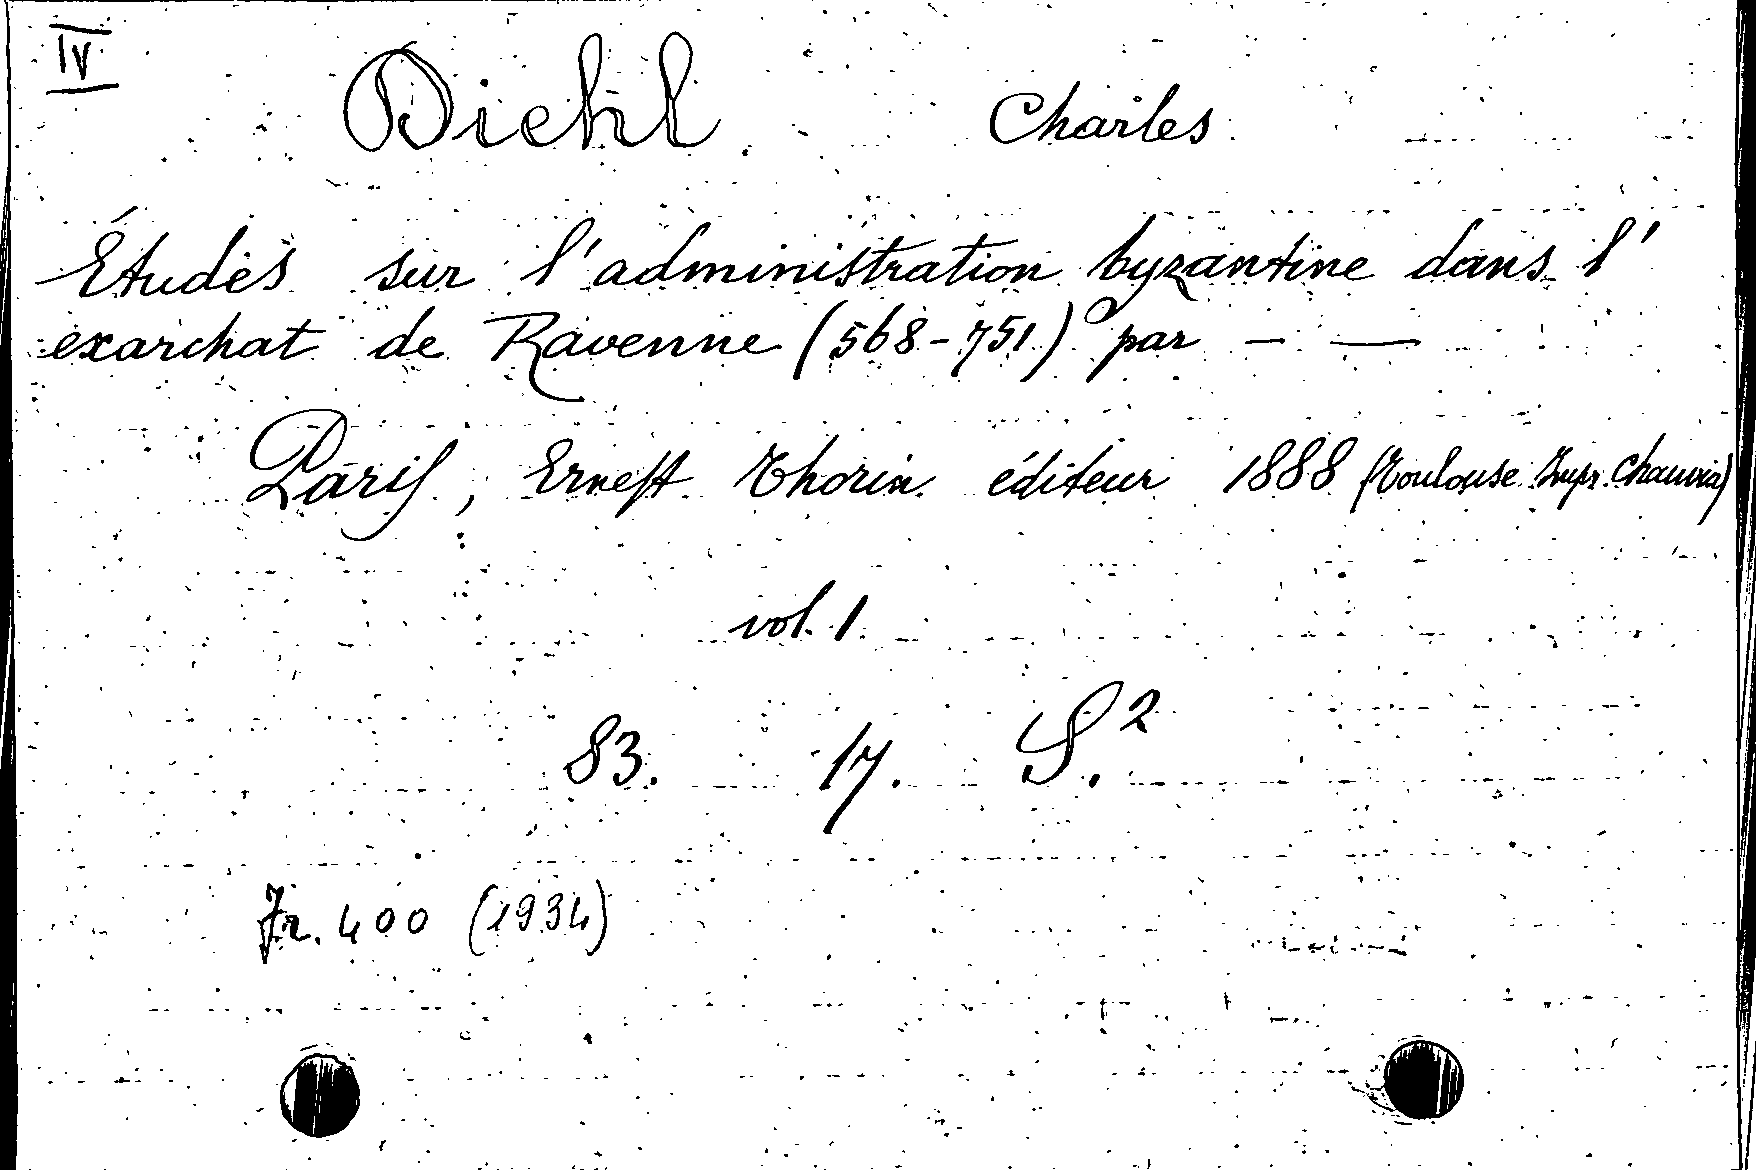 IV
Diehl Charles
Études sur l'administration byzantine dans l'
exarchat de Ravenne (568-751) par — —
Paris, Ernest Thorin éditeur 1888 (Toulouse Impr. Chauvin)
vol. 1.
83. 17. S.²
Fr. 400 (1934)